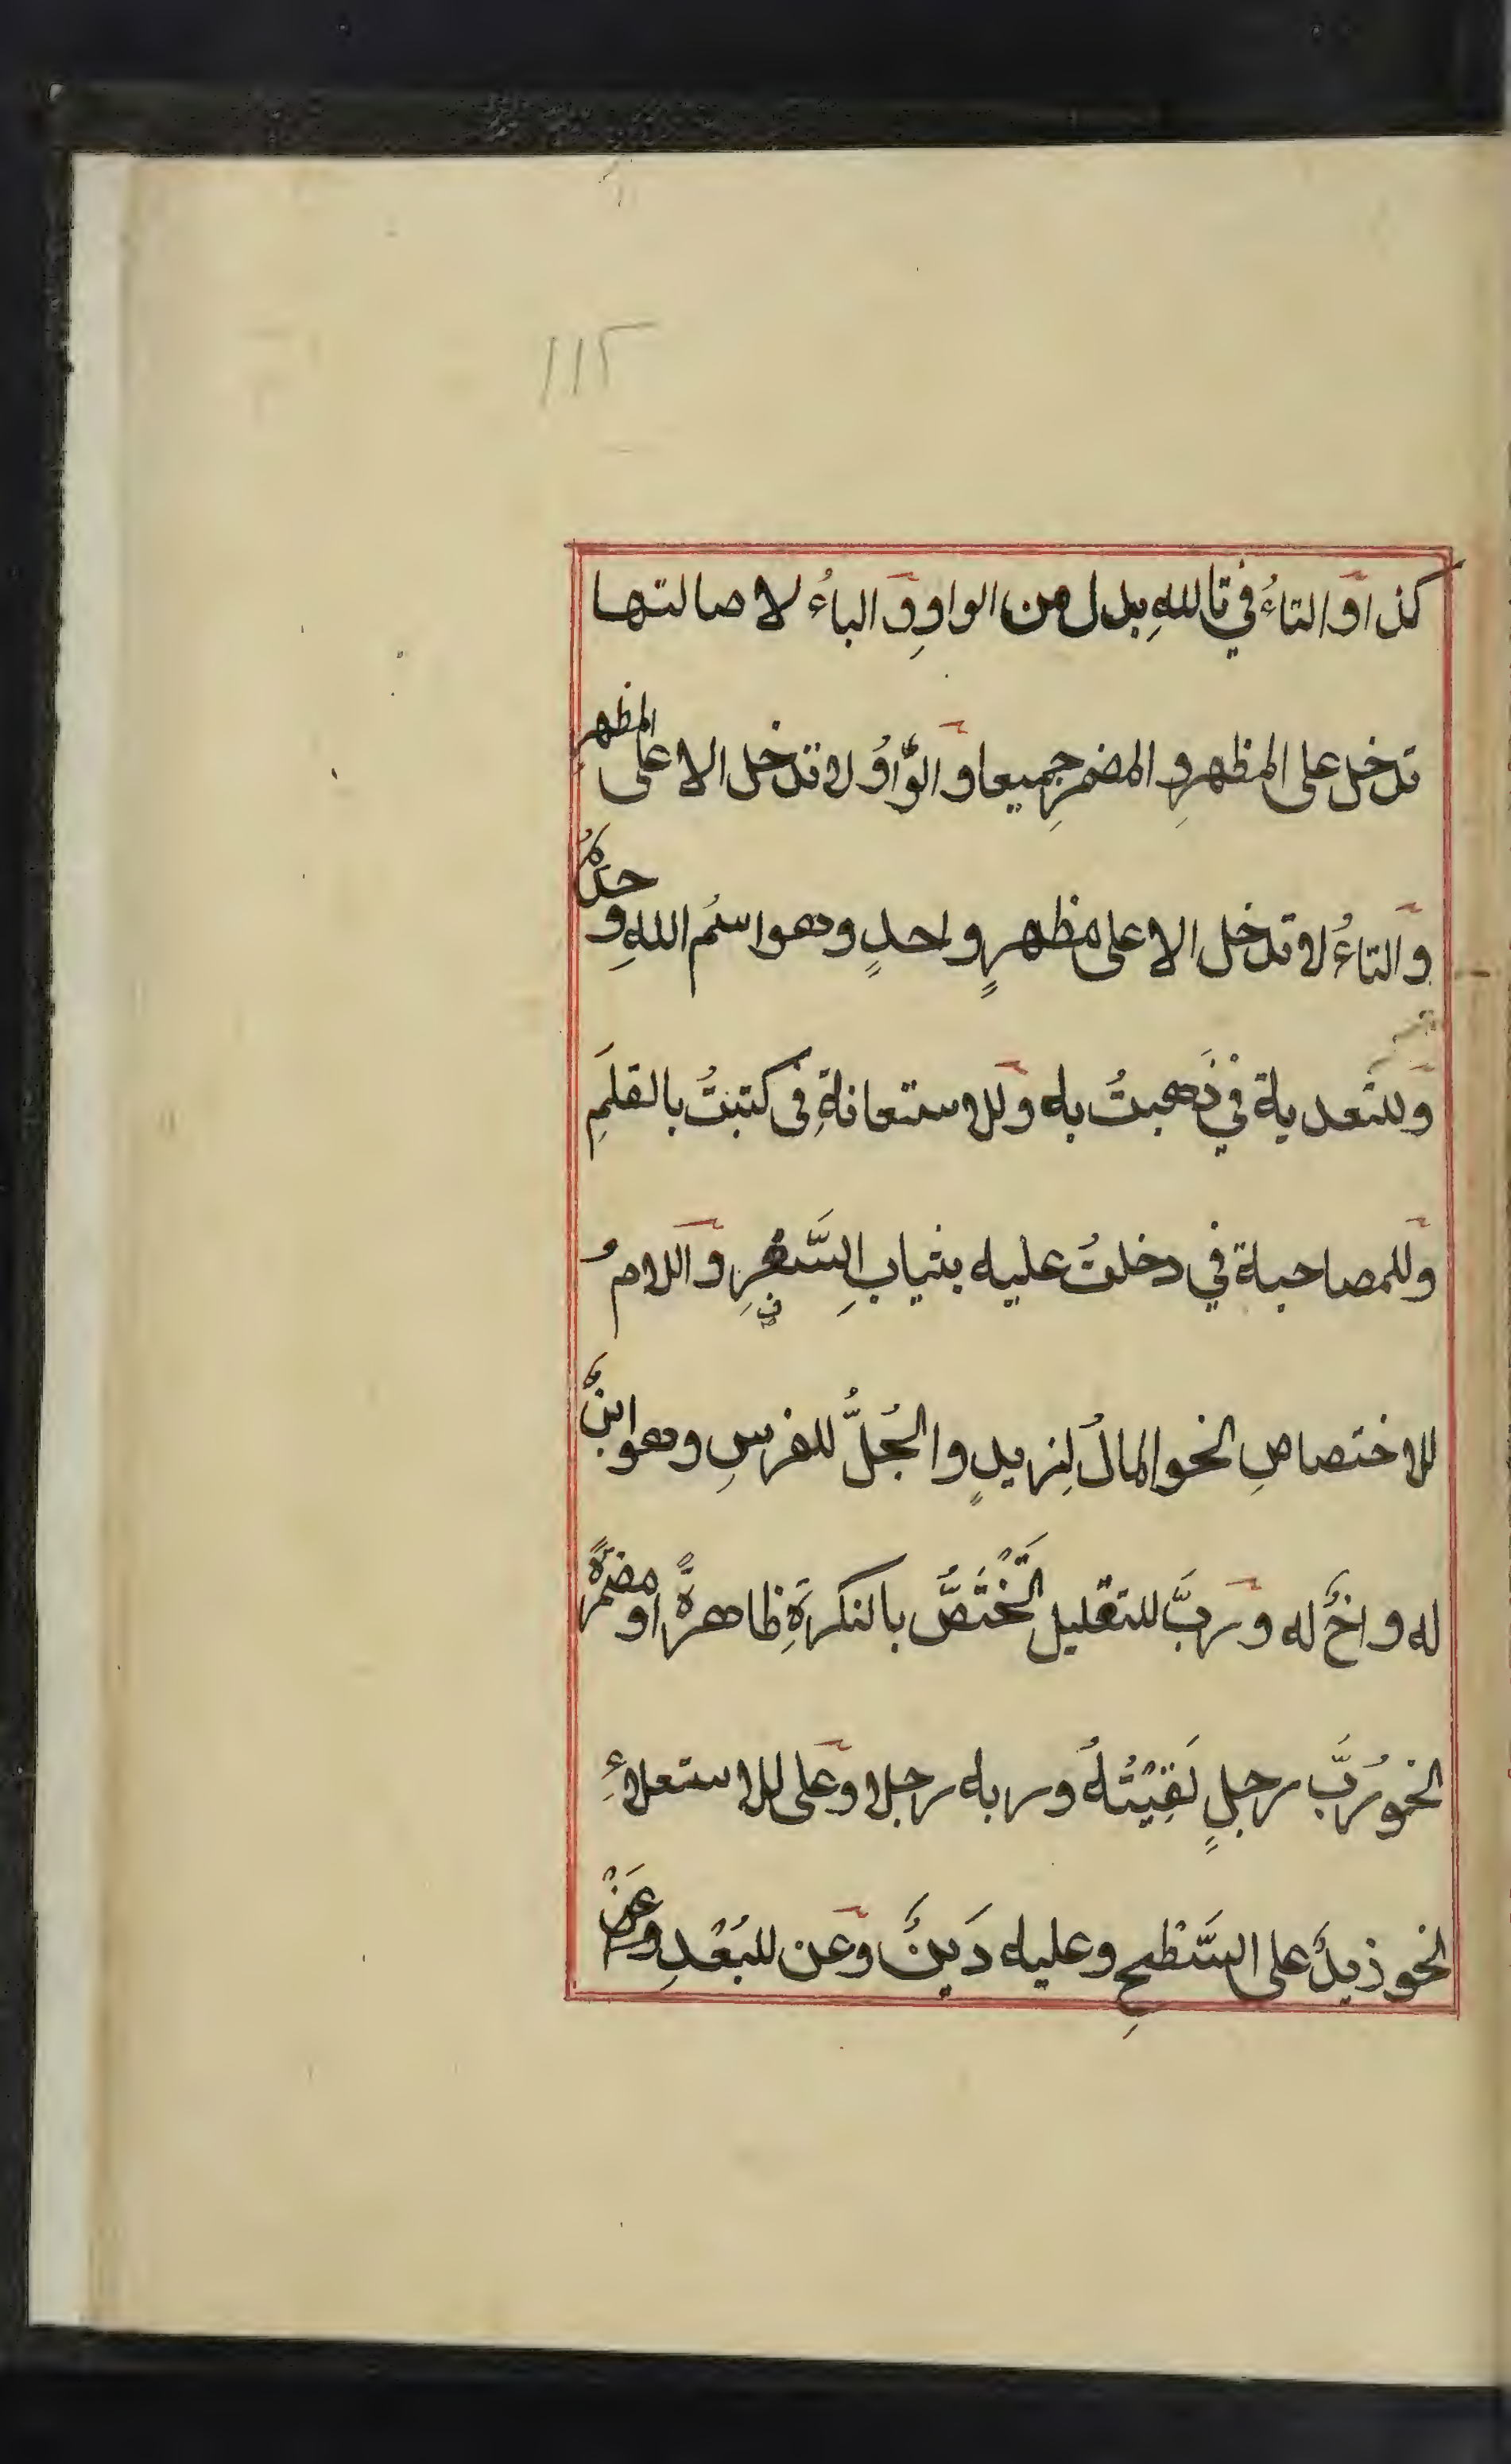 ١١٢
كذا والتاءُ في تاللهِ بدل من الواوِ و الباءُ لاصالتها
تدخل على المظهرِ و المضمرِ جميعا و الوَّاوُ لا تدخل الا على المظهرِ
و التاءُ لا تدخل الا على مظهرٍ واحدٍ وهو اسمُ اللهِ وحدَهُ
وللتَعدية في ذَهبتُ به وللاستعانةِ في كتبتُ بالقلَمِ
وللمصاحبة في دخلتُ عليه بثيابِ السَّفَرِ و اللامُ
للاختصاصِ نحو المالُ لِزيدٍ والجُلُّ للفرسِ وهو ابنٌ
له واخٌ له و ربَّ للتقليل تَخْتَصُّ بالنكرَةِ ظاهرةً او مضمرةً
نحو رُبَّ رجلٍ لَقِيْتُهُ وربه رجلا وعلى للاستعلاءِ
نحو زيدٌ على السَّطْحِ وعليه دَينٌ وعن للبُعْدِ وعَنْ